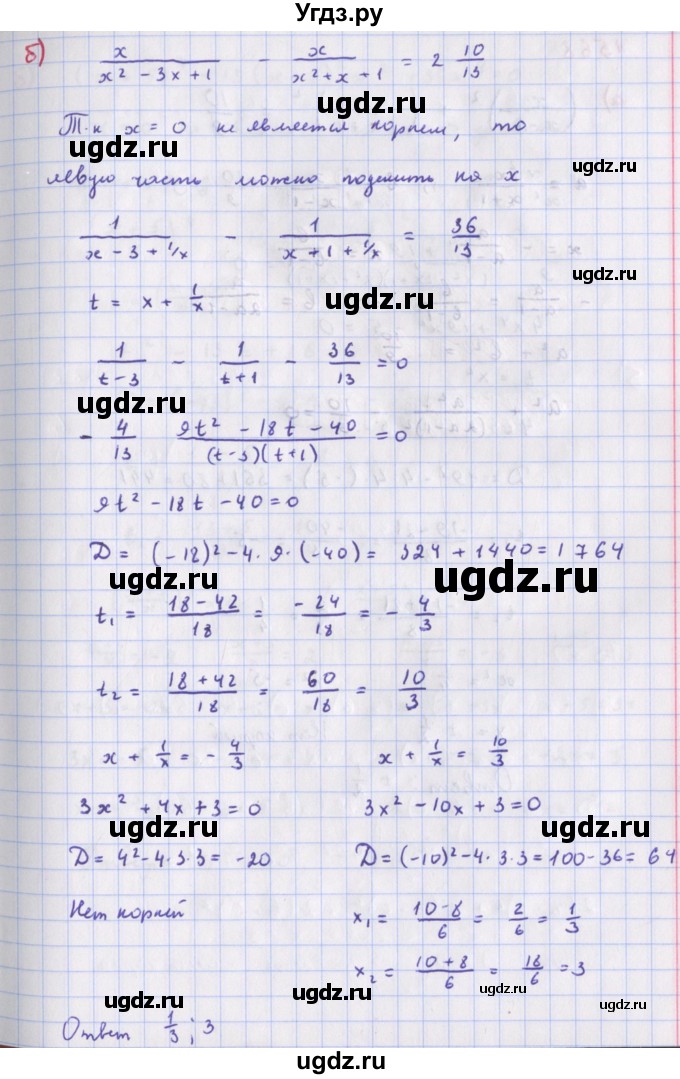 Угдз.ру
б) x/(x² - 3x + 1) - x/(x² + x + 1) = 2 10/13
ugdz.ru
Т.к x = 0 не является корнем, то
ugdz.ru ugdz.ru
левую часть можно поделить на x
1/(x - 3 + 1/x) - 1/(x + 1 + 1/x) = 36/13
ugdz.ru
t = x + 1/x
ugdz.ru
1/(t - 3) - 1/(t + 1) - 36/13 = 0
ugdz.ru
- 4/13 (9t² - 18t - 40)/((t - 3)(t + 1)) = 0
ugdz.ru
9t² - 18t - 40 = 0
D = (-18)² - 4 · 9 · (-40) = 324 + 1440 = 1764
ugdz.ru ugdz.ru
t₁ = (18 - 42)/18 = -24/18 = - 4/3
ugdz.ru
t₂ = (18 + 42)/18 = 60/18 = 10/3
ugdz.ru
x + 1/x = - 4/3 x + 1/x = 10/3
3x² + 4x + 3 = 0 3x² - 10x + 3 = 0
ugdz.ru ugdz.ru
D = 4² - 4 · 3 · 3 = -20 D = (-10)² - 4 · 3 · 3 = 100 - 36 = 64
Нет корней x₁ = (10 - 8)/6 = 2/6 = 1/3
ugdz.ru
x₂ = (10 + 8)/6 = 18/6 = 3
ugdz.ru ugdz.ru
Ответ 1/3 ; 3
ugdz.ru